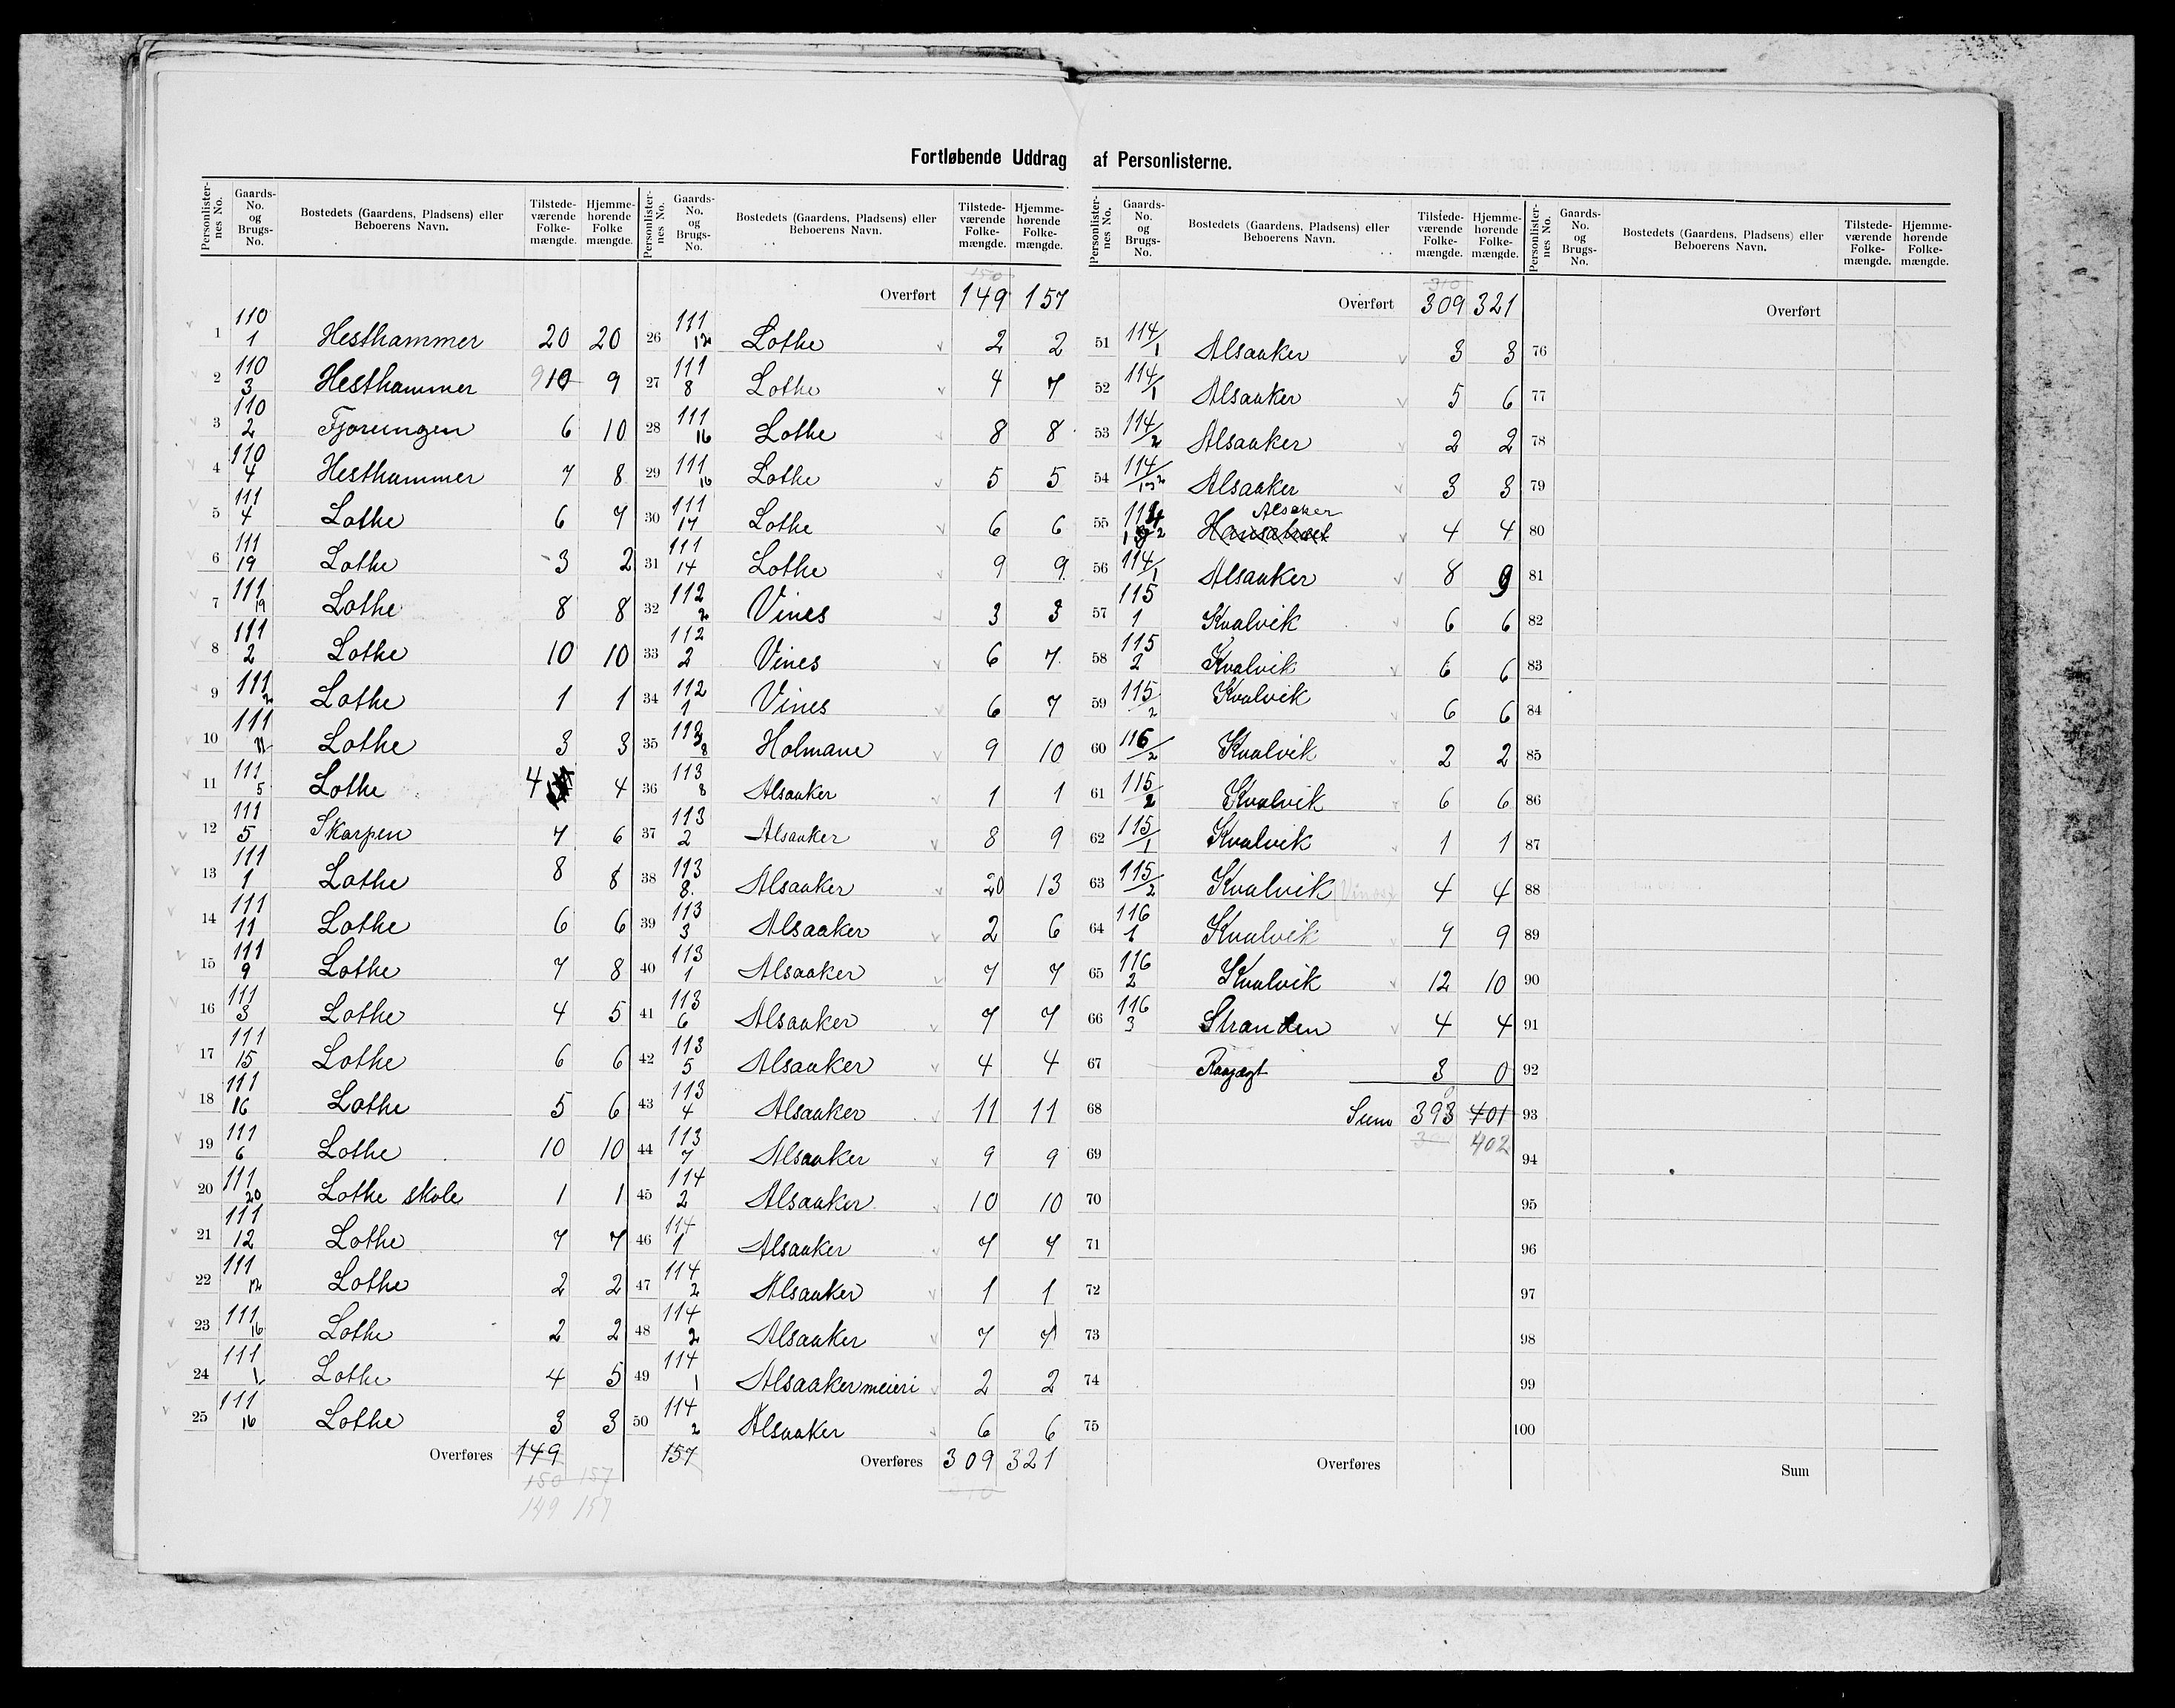 Fortløbende Uddrag af Personlisterne.
Personlister-nes No. | Gaards-No. og Brugs-No. | Bostedets (Gaardens, Pladsens) eller Beboerens Navn. | Tilstede-værende Folke-mængde. | Hjemme-hørende Folke mængde.
1 110 1 Hesthammer 20 20
2 110 3 Hesthammer 9 10 9
3 110 2 Tjoreingen 6 10
4 110 4 Hesthammer 7 8
5 111 4 Lothe 6 7
6 111 19 Lothe 3 2
7 111 19 Lothe 8 8
8 111 2 Lothe 10 10
9 111 2 Lothe 1 1
10 111 11 Lothe 3 3
11 111 5 Lothe 4 4
12 111 5 Skarpen 7 6
13 111 1 Lothe 8 8
14 111 11 Lothe 6 6
15 111 9 Lothe 7 8
16 111 3 Lothe 4 5
17 111 15 Lothe 6 6
18 111 16 Lothe 5 6
19 111 6 Lothe 10 10
20 111 20 Lothe skole 1 1
21 111 12 Lothe 7 7
22 111 12 Lothe 2 2
23 111 16 Lothe 2 2
24 111 1 Lothe 4 5
25 111 16 Lothe 3 3
Overføres 149 157
150 157
149 157
Personlister-nes No. | Gaards-No. og Brugs-No. | Bostedets (Gaardens, Pladsens) eller Beboerens Navn. | Tilstede-værende Folke-mængde. | Hjemme-hørende Folke-mængde.
150
Overført 149 157
26 111 12 Lothe 2 2
27 111 8 Lothe 4 7
28 111 16 Lothe 8 8
29 111 16 Lothe 5 5
30 111 17 Lothe 6 6
31 111 14 Lothe 9 9
32 112 2 Vines 3 3
33 112 2 Vines 6 7
34 112 1 Vines 6 7
35 113 8 Holmane 9 10
36 113 8 Alsaaker 1 1
37 113 2 Alsaaker 8 9
38 113 8 Alsaaker 20 13
39 113 3 Alsaaker 2 6
40 113 1 Alsaaker 7 7
41 113 6 Alsaaker 7 7
42 113 5 Alsaaker 4 4
43 113 4 Alsaaker 11 11
44 113 7 Alsaaker 9 9
45 114 2 Alsaaker 10 10
46 114 1 Alsaaker 7 7
47 114 2 Alsaaker 1 1
48 114 2 Alsaaker 7 7
49 114 1 Alsaakermeieri 2 2
50 114 2 Alsaaker 6 6
Overføres 309 321
310
Personlister-nes No. | Gaards-No. og Brugs-No. | Bostedets (Gaardens, Pladsens) eller Beboerens Navn. | Tilstede-værende Folke-mængde. | Hjemme-hørende Folke-mængde.
310
Overført 309 321
51 114/1 Alsaaker 3 3
52 114/1 Alsaaker 5 6
53 114/2 Alsaaker 2 2
54 114/2 Alsaaker 3 3
Alsaker
55 114 2 4 4
56 114/1 Alsaaker 8 9
57 115 1 Kvalvik 6 6
58 115 2 Kvalvik 6 6
59 115/2 Kvalvik 6 6
60 116/2 Kvalvik 2 2
61 115/2 Kvalvik 6 6
62 115/1 Kvalvik 1 1
63 115/2 Kvalvik 4 4
64 116 1 Kvalvik 9 9
65 116 2 Kvalvik 12 10
66 116 3 Stranden 4 4
67 3 0
68 Sum 393 401
69 402
70
71
72
73
74
75
Overføres
Personlister-nes No. | Gaards-No. og Brugs-No. | Bostedets (Gaardens, Pladsens) eller Beboerens Navn. | Tilstede-værende Folke-mængde. | Hjemme-hørende Folke-mængde.
Overført
76
77
78
79
80
81
82
83
84
85
86
87
88
89
90
91
92
93
94
95
96
97
98
99
100
Sum